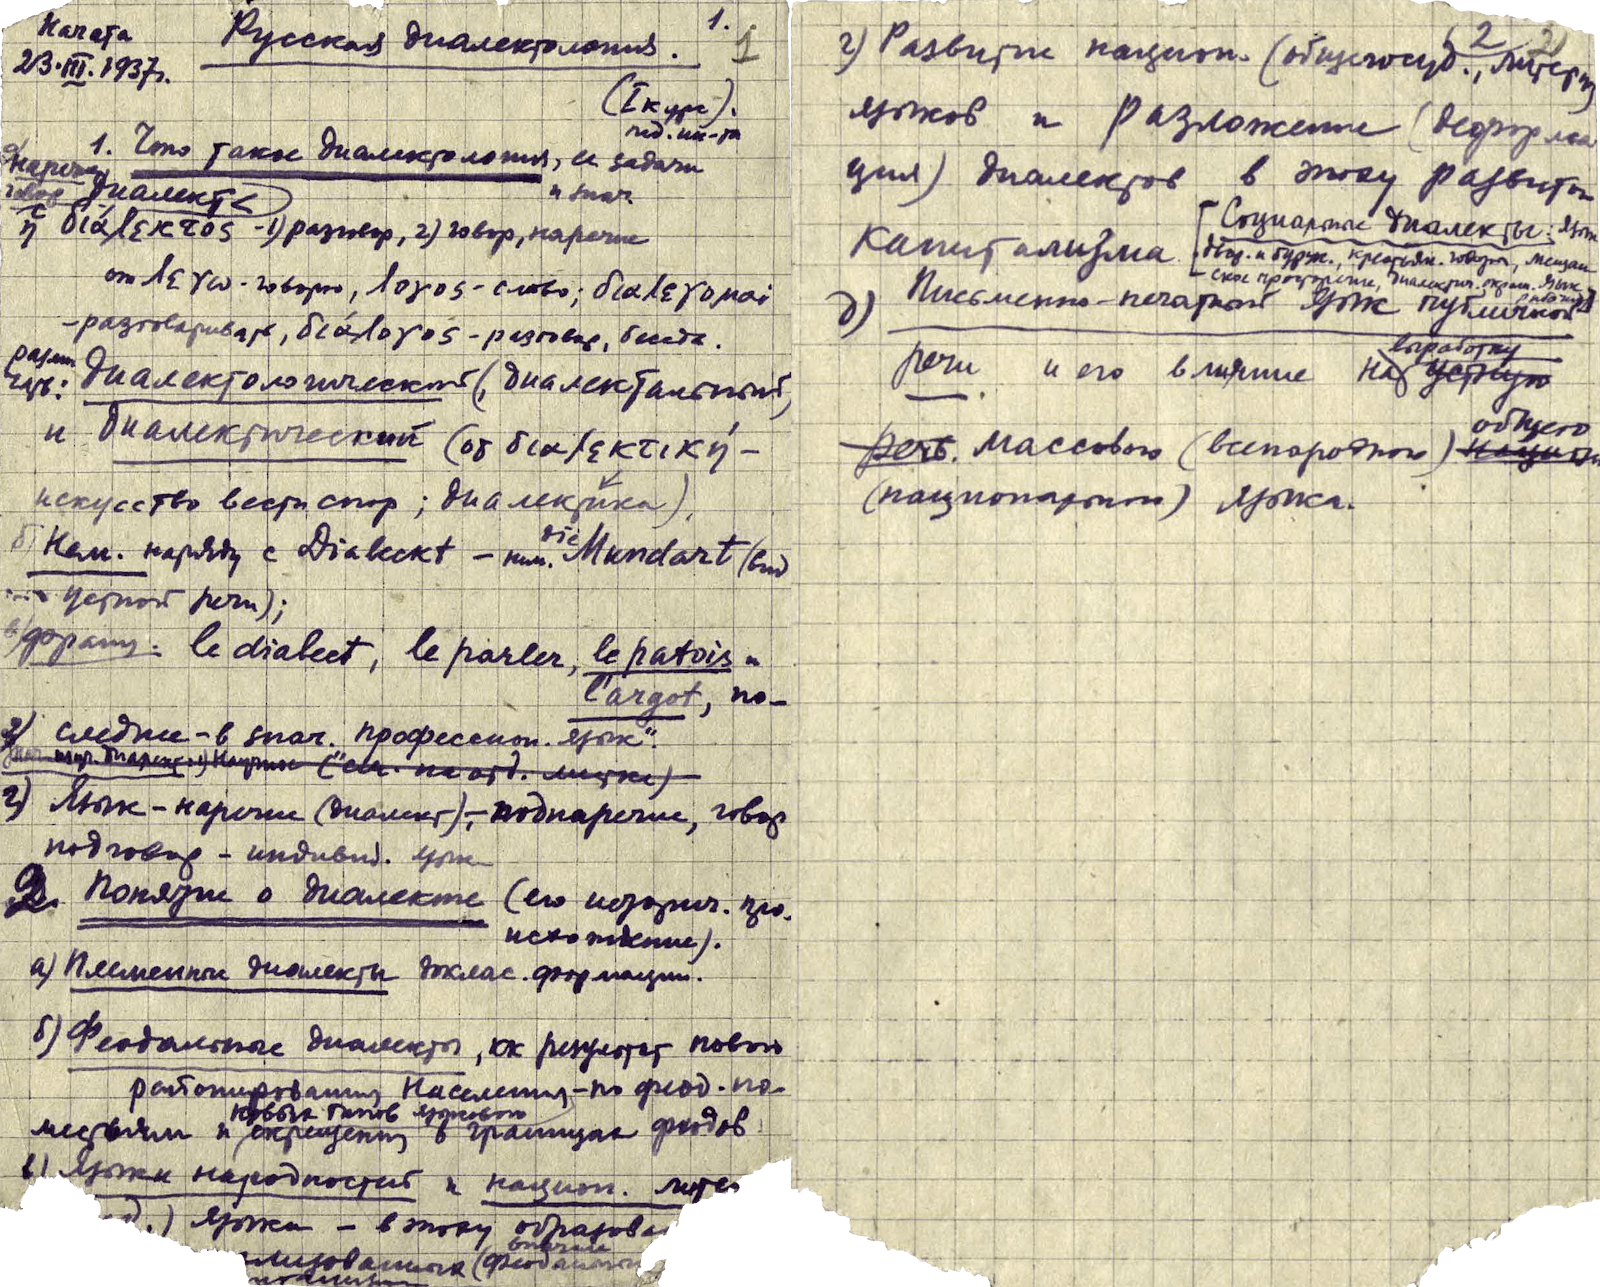 Начата
23.III.1937г.
Русская диалектология.
1.
1
(I курс).
пед. ин-та
1. Что такое диалектология, ее задачи
и знач.
наречие
говор диалект <
ἡ διάλεκτος - 1) разговор, 2) говор, наречие
от λεγω - говорю, λογος - слово; διαλεγομαι
- разговаривать, διάλογος - разговор, беседа.
различать: диалектологический (диалектальный)
и диалектический (от διαλεκτική -
искусство вести спор; диалектика).
б) Нем. наряду с Dialeckt - нем. die Mundart (вид
устной речи);
в) франц. le dialect, le parler, le patois и
l'argot, по-
следние - в знач. профессион. язык".
(см. на отд. листке)
г) Язык - наречие (диалект), - поднаречие, говор
подговор - индивид. язык
2. Понятие о диалекте (его историч. про-
исхождение).
а) Племенные диалекты доклас. формации.
б) Феодальные диалекты, как результат нового
районирования населения - по феод. по-
местьям и новых типов языкового
скрещения в границах феодов
в) Языки народностей и национ.
языки - в эпоху
(2
2)
г) Развитие национ. (общегосуд., литерат)
языков и разложение (деформа
ция) диалектов в эпоху развития
капитализма [Социальные диалекты: язык
двор. и бурж., крестьян. говоры, мещан
ское просторечие, диалектич. окраш. язык
д) Письменно-печатный язык публичной
речи и его влияние на устную выработку
речь. массового (всенародного) общего
(национального) языка.